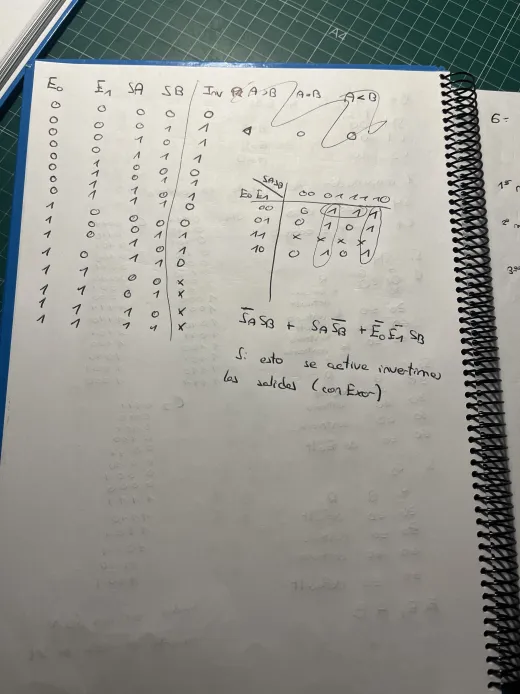 E₀ E₁ SA SB Inv A>B A=B A<B
0 0 0 0 0
0 0 0 1 1
0 0 1 0 1
0 0 1 1 1
0 1 0 0 0
0 1 0 1 1
0 1 1 0 1
0 1 1 1 0
1 0 0 0 0
1 0 0 1 1
1 0 1 0 1
1 0 1 1 0
1 1 0 0 x
1 1 0 1 x
1 1 1 0 x
1 1 1 1 x
SA SB
E₀ E₁ 00 01 11 10
00 0 1 1 1
01 0 1 0 1
11 x x x x
10 0 1 0 1
S̅A SB + SA S̅B + E̅₀ E̅₁ SB
Si esto se active invertimos
las salidas (con Exor)
6=
1º
2
3º